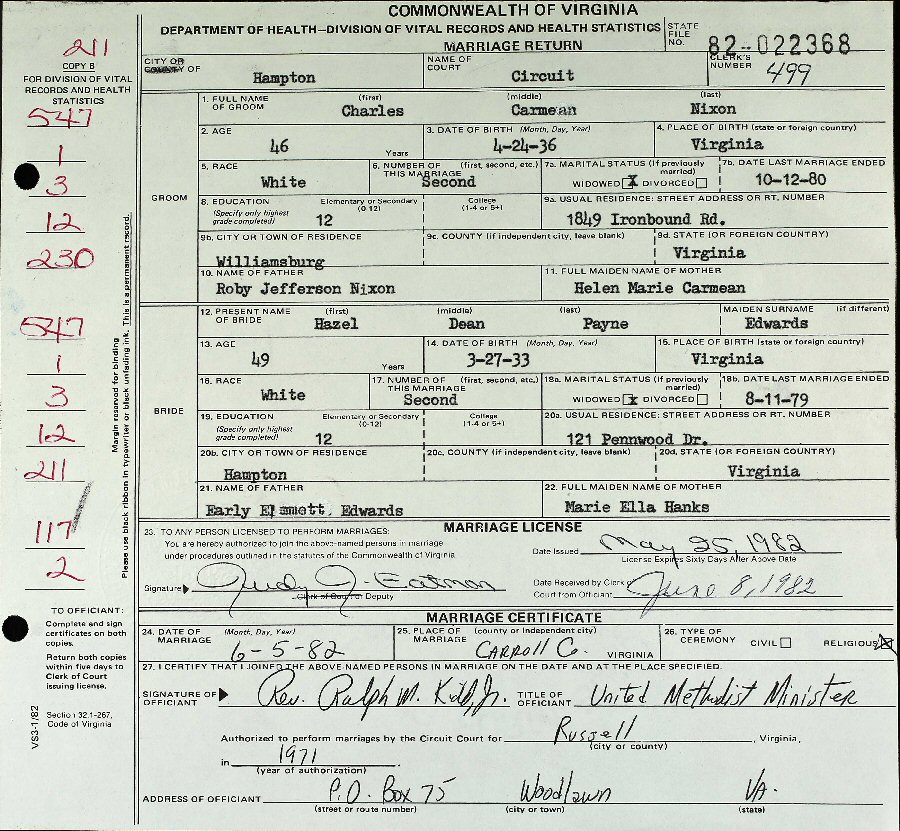 COMMONWEALTH OF VIRGINIA
DEPARTMENT OF HEALTH—DIVISION OF VITAL RECORDS AND HEALTH STATISTICS
MARRIAGE RETURN
STATE FILE NO. 82-022368
CLERK'S NUMBER 499
211
COPY B
FOR DIVISION OF VITAL
RECORDS AND HEALTH
STATISTICS
547
1
3
12
230
547
1
3
12
211
117
2
Margin reserved for binding
Please use black ribbon in typewriter or black unfading ink. This is a permanent record.
CITY OR COUNTY OF Hampton
NAME OF COURT Circuit
GROOM
1. FULL NAME OF GROOM (first) Charles (middle) Carmean (last) Nixon
2. AGE 46 Years
3. DATE OF BIRTH (Month, Day, Year) 4-24-36
4. PLACE OF BIRTH (state or foreign country) Virginia
5. RACE White
6. NUMBER OF THIS MARRIAGE (first, second, etc.) Second
7a. MARITAL STATUS (If previously married) WIDOWED X DIVORCED
7b. DATE LAST MARRIAGE ENDED 10-12-80
8. EDUCATION (Specify only highest grade completed) Elementary or Secondary (0-12) 12 College (1-4 or 5+)
9a. USUAL RESIDENCE: STREET ADDRESS OR RT. NUMBER 1849 Ironbound Rd.
9b. CITY OR TOWN OF RESIDENCE Williamsburg
9c. COUNTY (if independent city, leave blank)
9d. STATE (OR FOREIGN COUNTRY) Virginia
10. NAME OF FATHER Roby Jefferson Nixon
11. FULL MAIDEN NAME OF MOTHER Helen Marie Carmean
BRIDE
12. PRESENT NAME OF BRIDE (first) Hazel (middle) Dean (last) Payne MAIDEN SURNAME (if different) Edwards
13. AGE 49 Years
14. DATE OF BIRTH (Month, Day, Year) 3-27-33
15. PLACE OF BIRTH (state or foreign country) Virginia
16. RACE White
17. NUMBER OF THIS MARRIAGE (first, second, etc.) Second
18a. MARITAL STATUS (If previously married) WIDOWED X DIVORCED
18b. DATE LAST MARRIAGE ENDED 8-11-79
19. EDUCATION (Specify only highest grade completed) Elementary or Secondary (0-12) 12 College (1-4 or 5+)
20a. USUAL RESIDENCE: STREET ADDRESS OR RT. NUMBER 121 Pennwood Dr.
20b. CITY OR TOWN OF RESIDENCE Hampton
20c. COUNTY (if independent city, leave blank)
20d. STATE (OR FOREIGN COUNTRY) Virginia
21. NAME OF FATHER Early Emmett Edwards
22. FULL MAIDEN NAME OF MOTHER Marie Ella Hanks
MARRIAGE LICENSE
23. TO ANY PERSON LICENSED TO PERFORM MARRIAGES:
You are hereby authorized to join the above-named persons in marriage
under procedures outlined in the statutes of the Commonwealth of Virginia
Date Issued May 25, 1982
License Expires Sixty Days After Above Date
Signature Judy J. Eatmon
Clerk of Court or Deputy
Date Received by Clerk of Court from Official June 8, 1982
MARRIAGE CERTIFICATE
24. DATE OF MARRIAGE (Month, Day, Year) 6-5-82
25. PLACE OF MARRIAGE (county or independent city) CARROLL Co. VIRGINIA
26. TYPE OF CEREMONY CIVIL RELIGIOUS X
27. I CERTIFY THAT I JOINED THE ABOVE NAMED PERSONS IN MARRIAGE ON THE DATE AND AT THE PLACE SPECIFIED.
SIGNATURE OF OFFICIANT Rev. Ralph M. Kidd, Jr. TITLE OF OFFICIANT United Methodist Minister
Authorized to perform marriages by the Circuit Court for Russell, Virginia,
(city or county)
in 1971.
(year of authorization)
ADDRESS OF OFFICIANT P.O. Box 75 Woodlawn VA.
(street or route number) (city or town) (state)
TO OFFICIANT:
Complete and sign
certificates on both
copies.
Return both copies
within five days to
Clerk of Court
issuing license.
Section 32.1-267,
Code of Virginia
VS3-1/82